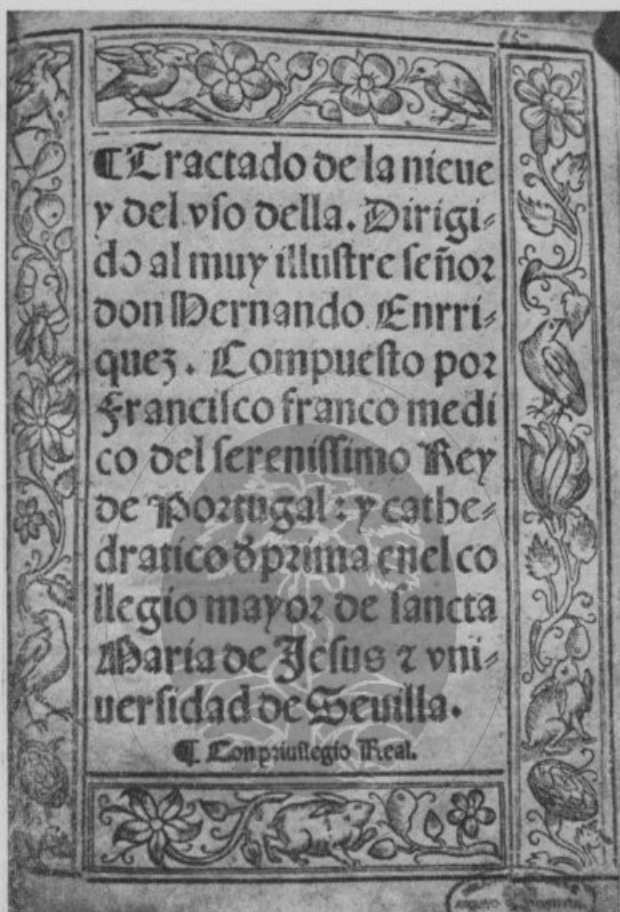 65
¶Tractado de la nieue
y del vſo della. Dirigi⸗
do al muy illuſtre ſeñor
don Hernando Enrri⸗
quez. Compueſto por
Franciſco franco medi
co del ſereniſſimo Rey
de Portugal: y cathe⸗
dratico đ prima enel co
llegio mayor de ſancta
Maria de Jeſus ⁊ vni⸗
uerſidad de Seuilla.
¶ Con priuilegio Real.